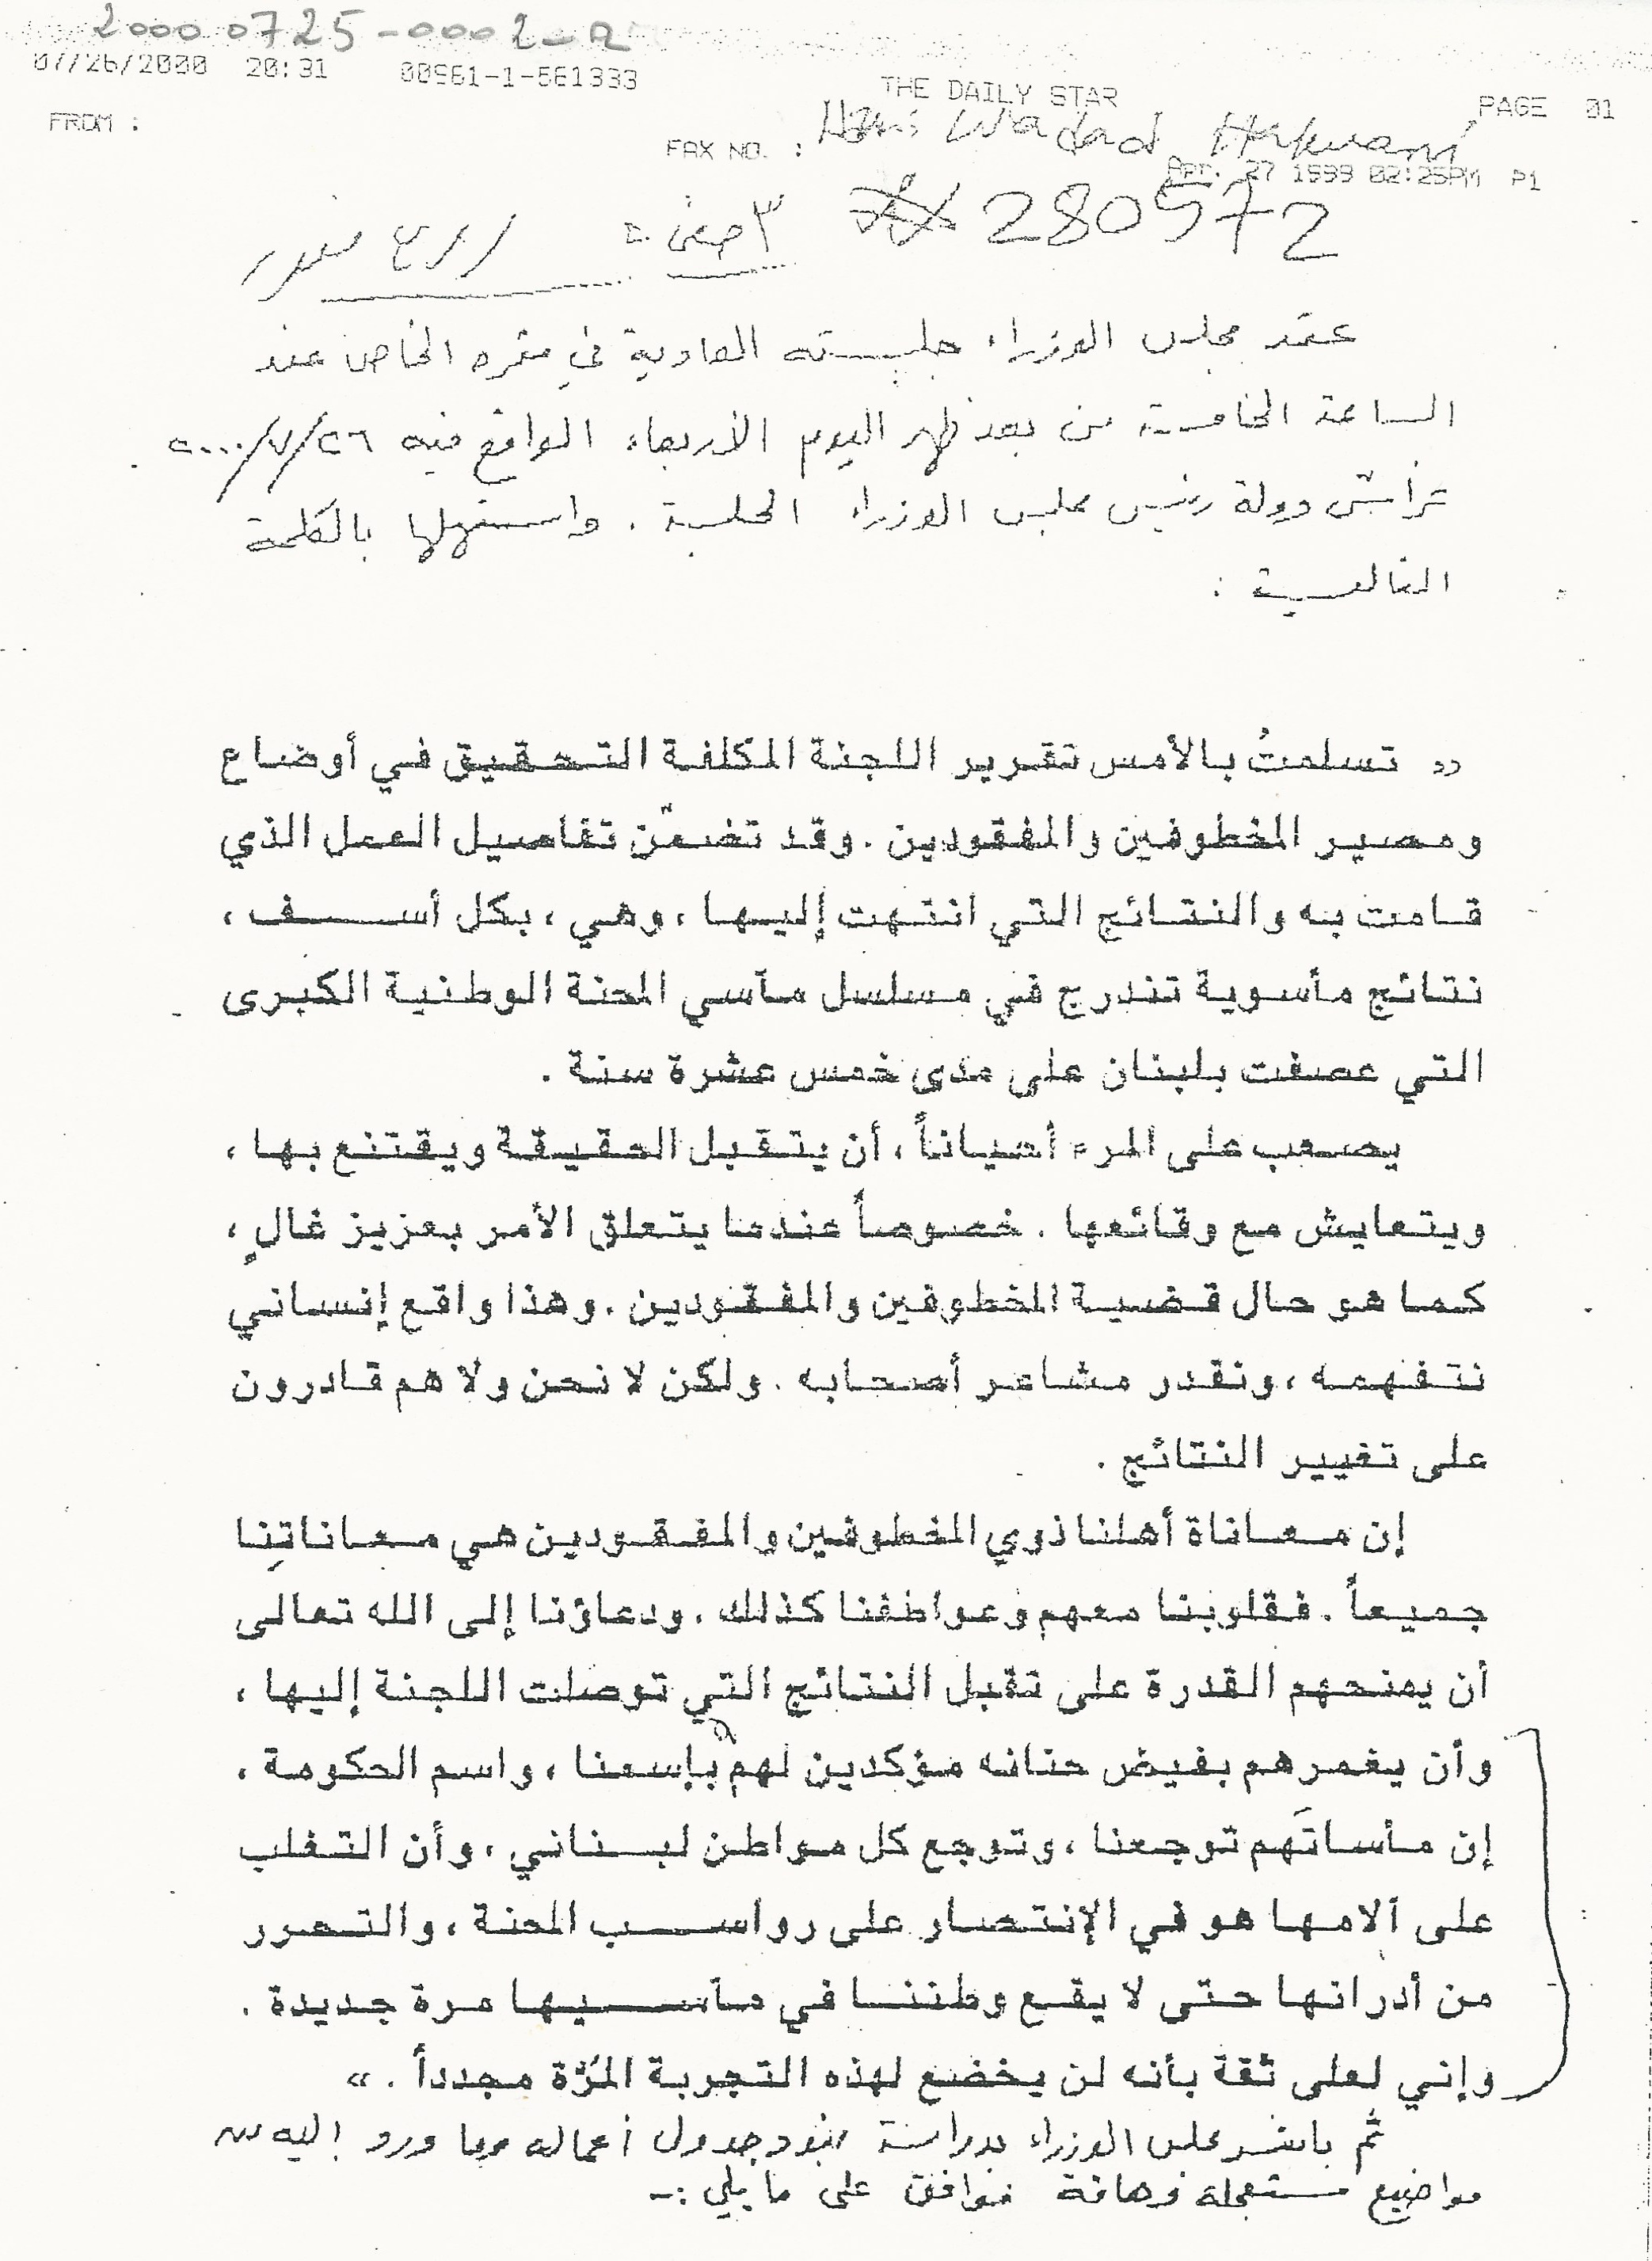 20000725-0002-a
07/26/2000 20:31 00961-1-561333 THE DAILY STAR PAGE 01
FROM : FAX NO. : Wadad
Apr. 27 1999 02:25PM P1
280572
٣
عقد مجلس الوزراء جلسته العادية في مقره الخاص عند
الساعة الخامسة من بعد ظهر اليوم الأربعاء الواقع فيه ٢٠٠٠/٧/٢٦
ترأس دولة رئيس مجلس الوزراء الجلسة . واستهلها بالكلمة
التالية :
« تسلمتُ بالأمس تقرير اللجنة المكلفة التحقيق في أوضاع
ومصير المخطوفين والمفقودين . وقد تضمّن تفاصيل العمل الذي
قامت به والنتائج التي انتهت إليها ، وهي ، بكل أسف ،
نتائج مأسوية تندرج في مسلسل مآسي المحنة الوطنية الكبرى
التي عصفت بلبنان على مدى خمس عشرة سنة .
يصعب على المرء أحياناً ، أن يتقبل الحقيقة ويقتنع بها ،
ويتعايش مع وقائعها . خصوصاً عندما يتعلق الأمر بعزيز غالٍ ،
كما هو حال قضية المخطوفين والمفقودين . وهذا واقع إنساني
نتفهمه ، ونقدر مشاعر أصحابه . ولكن لا نحن ولا هم قادرون
على تغيير النتائج .
إن معاناة أهلنا ذوي المخطوفين والمفقودين هي معاناتِنا
جميعاً . فقلوبنا معهم وعواطفنا كذلك . ودعاؤنا إلى الله تعالى
أن يمنحهم القدرة على تقبل النتائج التي توصلت اللجنة إليها ،
وأن يغمرهم بفيض حنانه مؤكدين لهم بإسمنا ، واسم الحكومة ،
إن مأساتَهم توجعنا ، وتوجع كل مواطن لبناني ، وأن التغلب
على آلامها هو في الإنتصار على رواسب المحنة ، والتحرر
من أدرانها حتى لا يقع وطننا في مآسيها مرة جديدة .
وإني لعلى ثقة بأنه لن يخضع لهذه التجربة المُرّة مجدداً . »
ثم باشر مجلس الوزراء بدراسة بنود جدول أعماله وما ورد إليه من
مواضيع مستعجلة وهامة فوافق على ما يلي :-